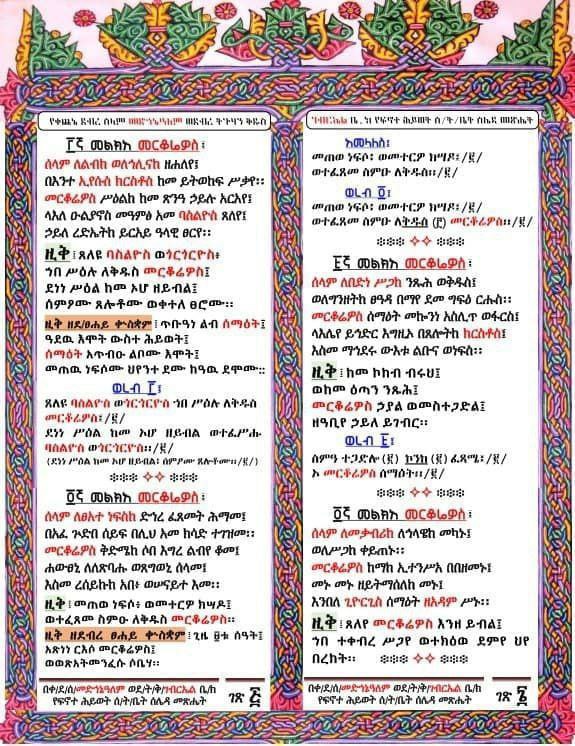 የቀጨኔ ደብረ ሰላም መድኃኔዓለም ወደብረ ትጉሃን ቅዱስ
፫ኛ መልክአ መርቆሬዎስ፤
ሰላም ለልብከ ወለኅሊናከ ዘሐለየ፤
በእንተ ኢየሱስ ክርስቶስ ከመ ይትወከፍ ሥቃየ።
መርቆሬዎስ ሥዕልከ ከመ ጽንዓ ኃይሉ አርአየ፤
ላእለ ዑልያኖስ መዓምፅ አመ ባስልዮስ ጸለየ፤
ኃይለ ረድኤትከ ይርአይ ዓላዊ ፀርየ።
ዚቅ፤ ጸለዩ ባስልዮስ ወጎርጎርዮስ፥
ኀበ ሥዕሉ ለቅዱስ መርቆሬዎስ፤
ደነነ ሥዕል ከመ ኦሆ ዘይብል፤
ሰምዖሙ ጸሎቶሙ ወቀተለ ፀሮሙ።
ዚቅ ዘደ/ፀሐይ ቍስቋም፤ ጥቡዓነ ልብ ሰማዕት፤
ዓደዉ እሞት ውስተ ሕይወት፤
ሰማዕት አጥብዑ ልቦሙ እሞት፤
መጠዉ ነፍሶሙ ህየንተ ደሙ ከዓዉ ደሞሙ።
ወረብ ፫፤
ጸለዩ ባስልዮስ ወጎርጎርዮስ ኀበ ሥዕሉ ለቅዱስ
መርቆሬዎስ፤/፪/
ደነነ ሥዕል ከመ ኦሆ ዘይብል ወተፈሥሑ
ባስልዮስ ወጎርጎርዮስ።/፪/
(ደነነ ሥዕል ከመ ኦሆ ዘይብል፤ ሰምዖሙ ጸሎቶሙ።/፪/)
፬ኛ መልክአ መርቆሬዎስ፤
ሰላም ለፀአተ ነፍስከ ድኅረ ፈጸመት ሕማመ፤
በአፈ ኲናት ሰይፍ በሊህ አመ ክሳድ ተገዝመ።
መርቆሬዎስ ቅድሜከ ሶበ እግረ ልብየ ቆመ፤
ሐውፀኒ ለለጽባሑ ወጸግወኒ ሰላመ፤
እስመ ረሰይኩከ አበ፥ ወሠናይተ እመ።
ዚቅ፤መጠወ ነፍሶ፥ ወመተርዎ ክሣዶ፤
ወተፈጸመ ስምዑ ለቅዱስ መርቆሬዎስ።
ዚቅ ዘደብረ ፀሐይ ቍስቋም፤ጊዜ ፀቱ ሰዓት፤
አጽነነ ርእሶ መርቆሬዎስ፤
ወወጽአት መንፈሱ ሶቤሃ።
በቀ/ደ/ሰ/መድኅኔዓለም ወደ/ት/ቅ/ገብርኤል ቤ/ክ
የፍኖተ ሕይወት ሰ/ት/ቤት ሰሌዳ መጽሔት
ገጽ ፮
ገብርኤል ቤ.ክ የፍኖተ ሕይወት ሰ/ት/ቤት ሰሌዳ መጽሔት
አመላለስ፤
መጠወ ነፍሶ፥ ወመተርዎ ክሣዶ፤/፪/
ወተፈጸመ ስምዑ ለቅዱስ።/፪/
ወረብ ፬፤
መጠወ ነፍሶ፥ ወመተርዎ ክሣዶ፤/፪/
ወተፈጸመ ስምዑ ለቅዱስ (፫) መርቆሬዎስ።/፪/
፭ኛ መልክአ መርቆሬዎስ፤
ሰላም ለበድነ ሥጋከ ንጹሕ ወቅዱስ፤
ወለግንዘትከ ፀዓዳ በማየ ደመ ግፍዕ ርሑስ።
መርቆሬዎስ ሰማዕት መኰንን አስሊጥ ወፋርስ፤
ላእሌየ ይኅድር እግዚኦ በጸሎትከ ክርስቶስ፤
እስመ ማኅደሩ ውእቱ ልቡና ወነፍስ።
ዚቅ፤ ከመ ኮከብ ብሩህ፤
ወከመ ዕጣን ንጹሕ፤
መርቆሬዎስ ኃያል ወመስተጋድል፤
ዘዓቢየ ኃይል ይገብር።
ወረብ ፭፤
ስምዓ ተጋድሎ (፪) ኰንከ (፪) ፈጻሜ፤/፪/
ኦ መርቆሬዎስ ሰማዕት።/፪/
፮ኛ መልክአ መርቆሬዎስ፤
ሰላም ለመቃብሪከ ለኅላዌከ መካኑ፤
ወሊሥጋከ ቀይጠኑ።
መርቆሬዎስ ከማከ ኢተኀሥአ በበዘመኑ፤
መኑ መኑ ዘይትማሰለከ መኑ፤
እንበለ ጊዮርጊስ ሰማዕት ዘአዳም ሥኑ።
ዚቅ፤ ጸለየ መርቆሬዎስ እንዘ ይብል፤
ኀበ ተቀብረ ሥጋየ ወተክዕወ ደምየ ህየ
በረከት።
በቀ/ደ/ሰ/መድኅኔዓለም ወደ/ት/ቅ/ገብርኤል ቤ/ክ
የፍኖተ ሕይወት ሰ/ት/ቤት ሰሌዳ መጽሔት
ገጽ ፯